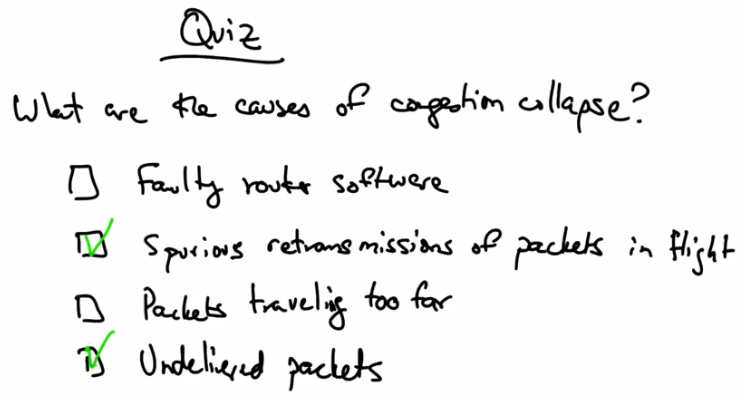 Quiz
What are the causes of congestion collapse?
Faulty router software
Spurious retransmissions of packets in flight
Packets traveling too far
Undelivered packets